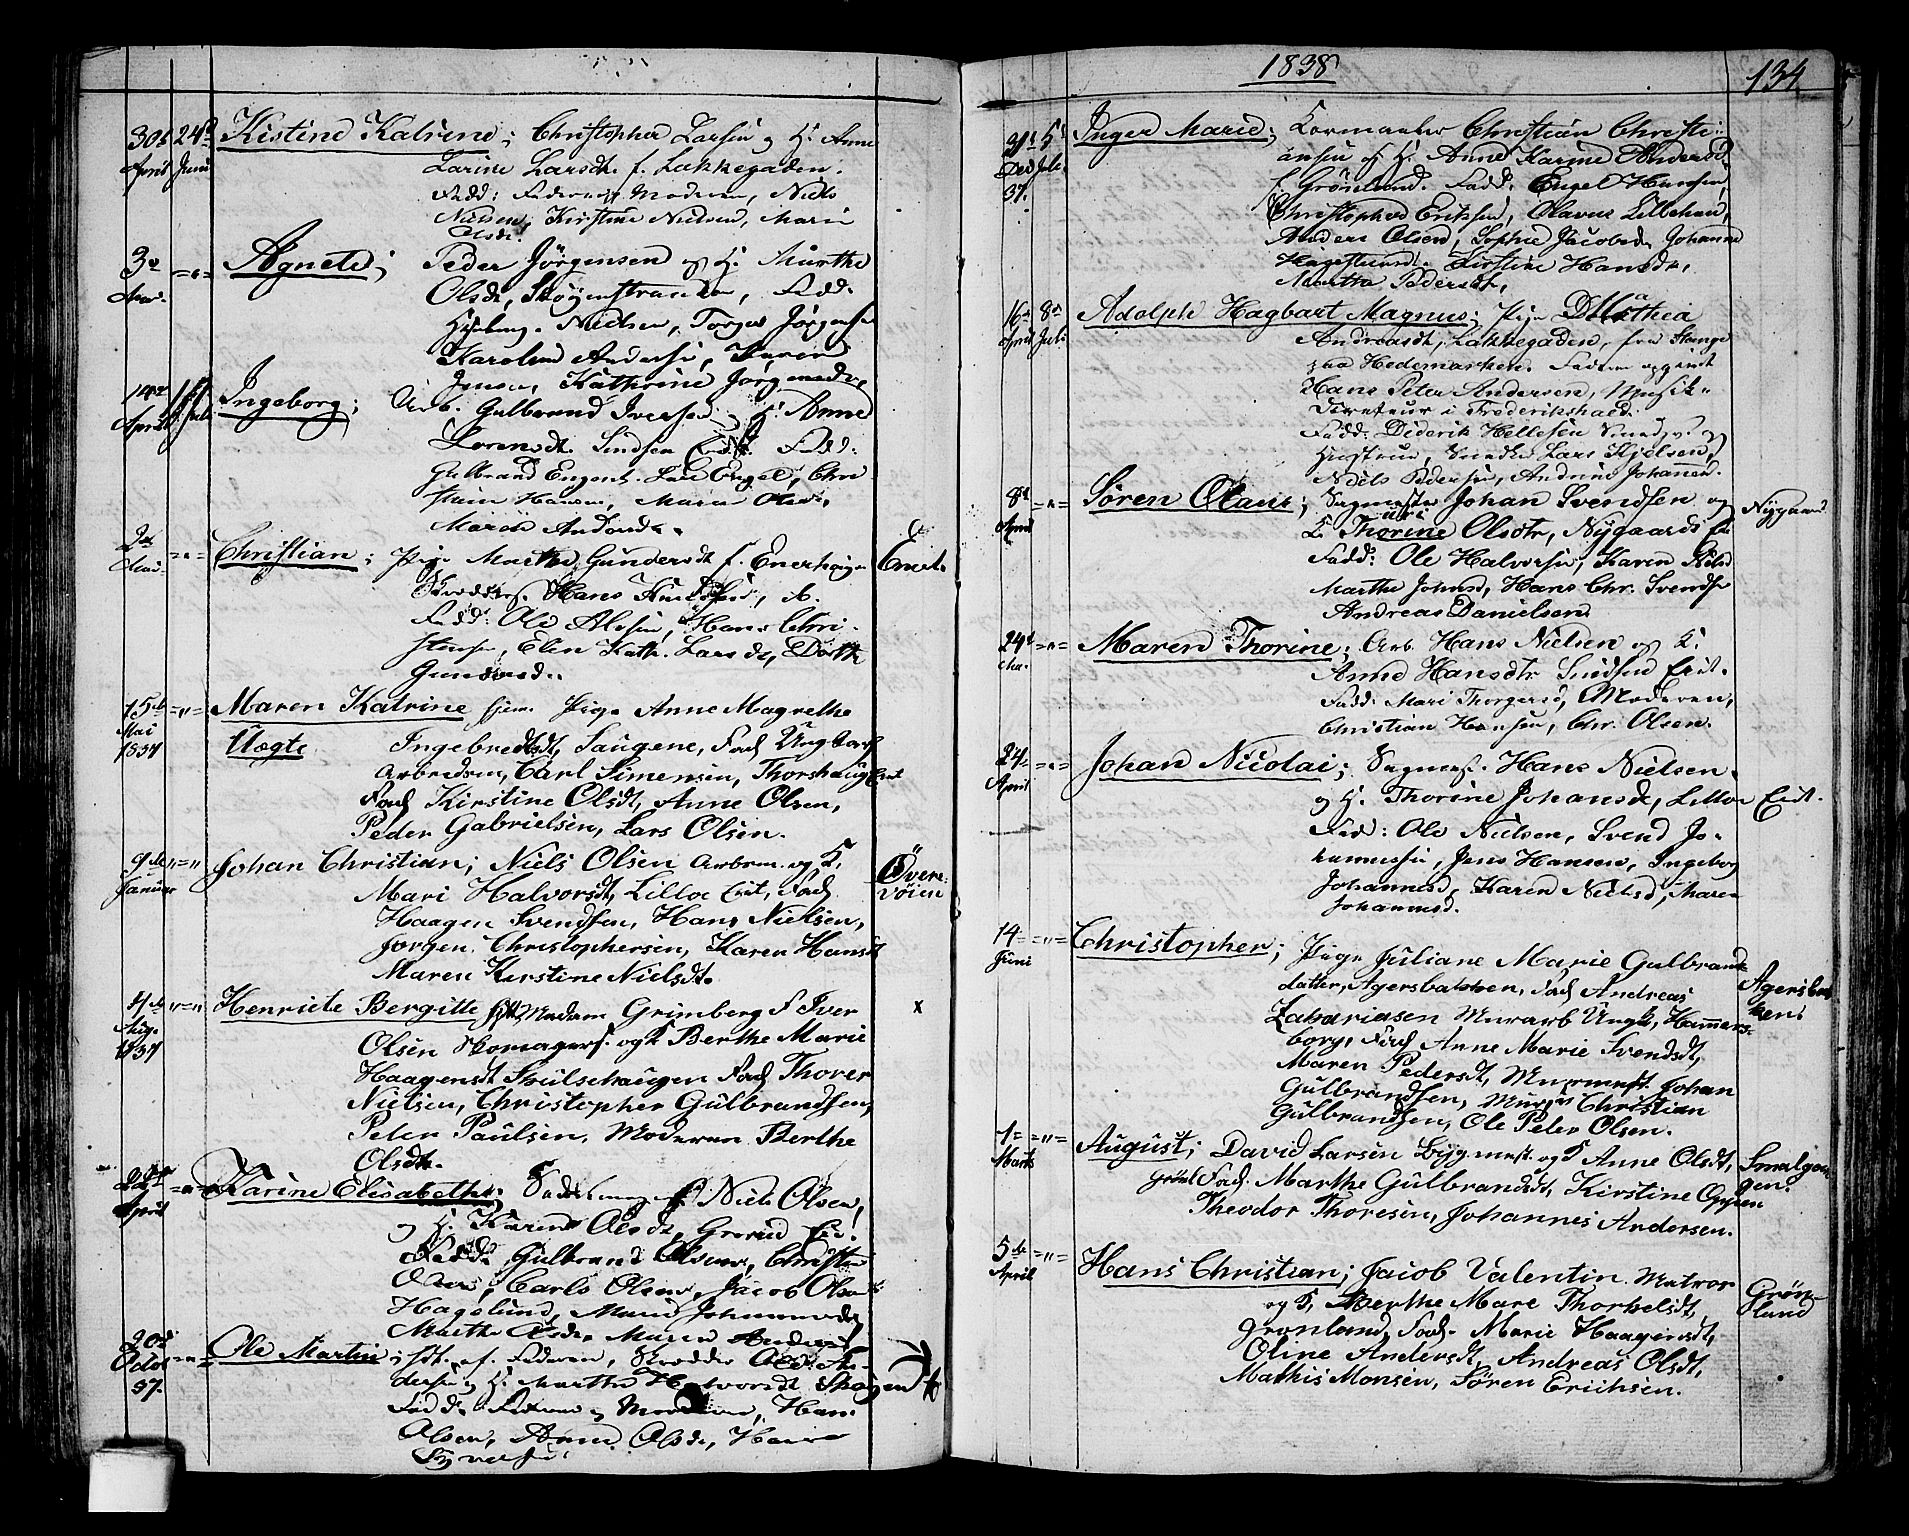 30te April 24de Juni Kistine Katrine; Christopher Larsen og H. Anne
Larine Larsdt. f. Lakkegaden.
Fadd: Faderen og Moderen, Niels
Nielsen, Kirstine Nielsen, Marie
Olsdt.
3die Mai =„= Agnete; Peder Jörgensen og H. Marthe
Olsdt,
Nielsen, Torger Jörgens.
Andersen, Karen
Jensen, Kathrine Jörgensd.
April Juli Ingeborg; Arb. Gulbrand Iversen og H. Anne
Lorensdt. Fadd:
Gulbrand Engel, Chri-
Hansen, Maria Olsd.
Maren
2de Mai =„= Christian; Pige Marthe Gundersdt f. Enerhaugen Enerh.
Skrædders. Hans Knudsen,
Fadd: Ole Olsen, Hans Chri-
stensen, Elen Kath. Larsdt, Dorth.
Gundersd.
15de Mai 1837 =„= Maren Katrine hjem. Pige Anne Magrethe
Uægte Ingebretsdt, Saugene, Fad Ungkarl
Arbeidsm, Carl Simensen, Thorshaug Eiet
Fad Kirstine Olsdt, Anne Olsen,
Peder Gabrielsen, Lars Olsen.
9de Januar =„= Johan Christian; Niels Olsen Arbem. og K. Övere
Mari Halvorsdt, Lilloe Eiet, Fad vöien
Haagen Svendsen, Hans Nielsen,
Jörgen Christophersen, Karen Hansdt
Maren Kirstine Nielsdt.
4de Aug. 1837 =„= Henriete Bergitte Madam Grimberg F Iver x
Olsen Skomagers. og K Berthe Marie
Haagensdt Fad Thorer
Nielsen, Christopher Gulbrandsen,
Peter Paulsen, Moderen Berthe
Olsdt.
22de April =„= Karine Elisabethe; Niels Olsen,
og H. Karen Olsdt, Grorud Eie.
Fadd: Gulbrand Olsen, Christen
Olsen, Carls Olsen, Jacob Olsen
Hagelund, Marie Johannesdt,
Marthe Olsdt, Maren
20de Octob 37. =„= Ole Martin; hdt. af Faderen, Skrædder Ole An-
dersen og H. Marthe Halvorsdt. Skoien
Fadd: Faderen og Moderen, Hans
Olsen, Anne Olsdt, Hans
Syversen.
1838 134.
21de Dec 37. 5te Juli Inger Marie; Kormaaler Christian Christi-
ansen og H. Anne Karine Andersd.
f. Grönland. Fadd: Engel Hansen,
Christopher Eriksen, Olavus Lillehan,
Anders Olsen, Sophie Jacobsd, Johanne
Kirstine Hansdt,
Martha Pedersdt,
16de April 8de Juli Adolph Hagbart Magnus; Pige Dll Mathea
Andreasdt, Lakkegaden, fra Stange
paa Hedemarken. Faderen opgivet
Hans Peter Andersen, Musik-
Directeur i Frederikshald.
Fadd: Diderik Hellesen Smed, og
Hustrue, Smeden Lars Kjelsen,
Niels Pedersen, Andrine Johannesd.
8de April =„= Sören Olaus; Sagmester Johan Svendsen og Nygaard
K. Thorine Olsdtr, Nygaards Eie
Fadd: Ole Halvorsen, Karen Nilsd
Marthe Johnsd, Hans Chr. Svendsen
Andreas Danielsen.
24de Mai =„= Maren Thorine; Arb. Hans Nielsen og K.
Anne Hansdtr Sindsen Eiet.
Fadd: Mari Thorgersd, Moderen,
Christian Hansen, Chr. Olsen.
24de April =„= Johan Nicolai; Sagmest. Hans Nielsen
og H. Thorine Johansdt, Lilloe Eiet.
Fad: Ole Nielsen, Svend Jo-
hannessen, Jens Hansen, Ingeborg
Johannesd, Karen Nielsd, Maren
Johannesd.
14= Juni =„= Christopher; Pige Juliane Marie Gulbrands
datter, Agersbakken, Fad Andreas Agersbak
Zakariasen Murarb Ungk, Hammers- ken.
borg, Fad Anne Marie Svendsdt,
Maren Pedersdt, Murmest. Johan
Gulbrandsen, Mursv Christian
Gulbrandsen, Ole Peter Olsen.
1= Marts =„= August; David Larsen Bygmest. og K Anne Olsdt, Smalgan
grönl Fad. Marthe Gulbrandsdt, Kirstine Oppen gen.
Theodor Thoresen, Johannes Andersen.
5de April =„= Hans Christian; Jacob Valentin Matros Grön-
og K, Berthe Mare Thorkelsdt, land
Grönland, Fad. Marie Haagensdt,
Oline Andersdt, Andreas Olsdt,
Mathis Monsen, Sören Erichsen.